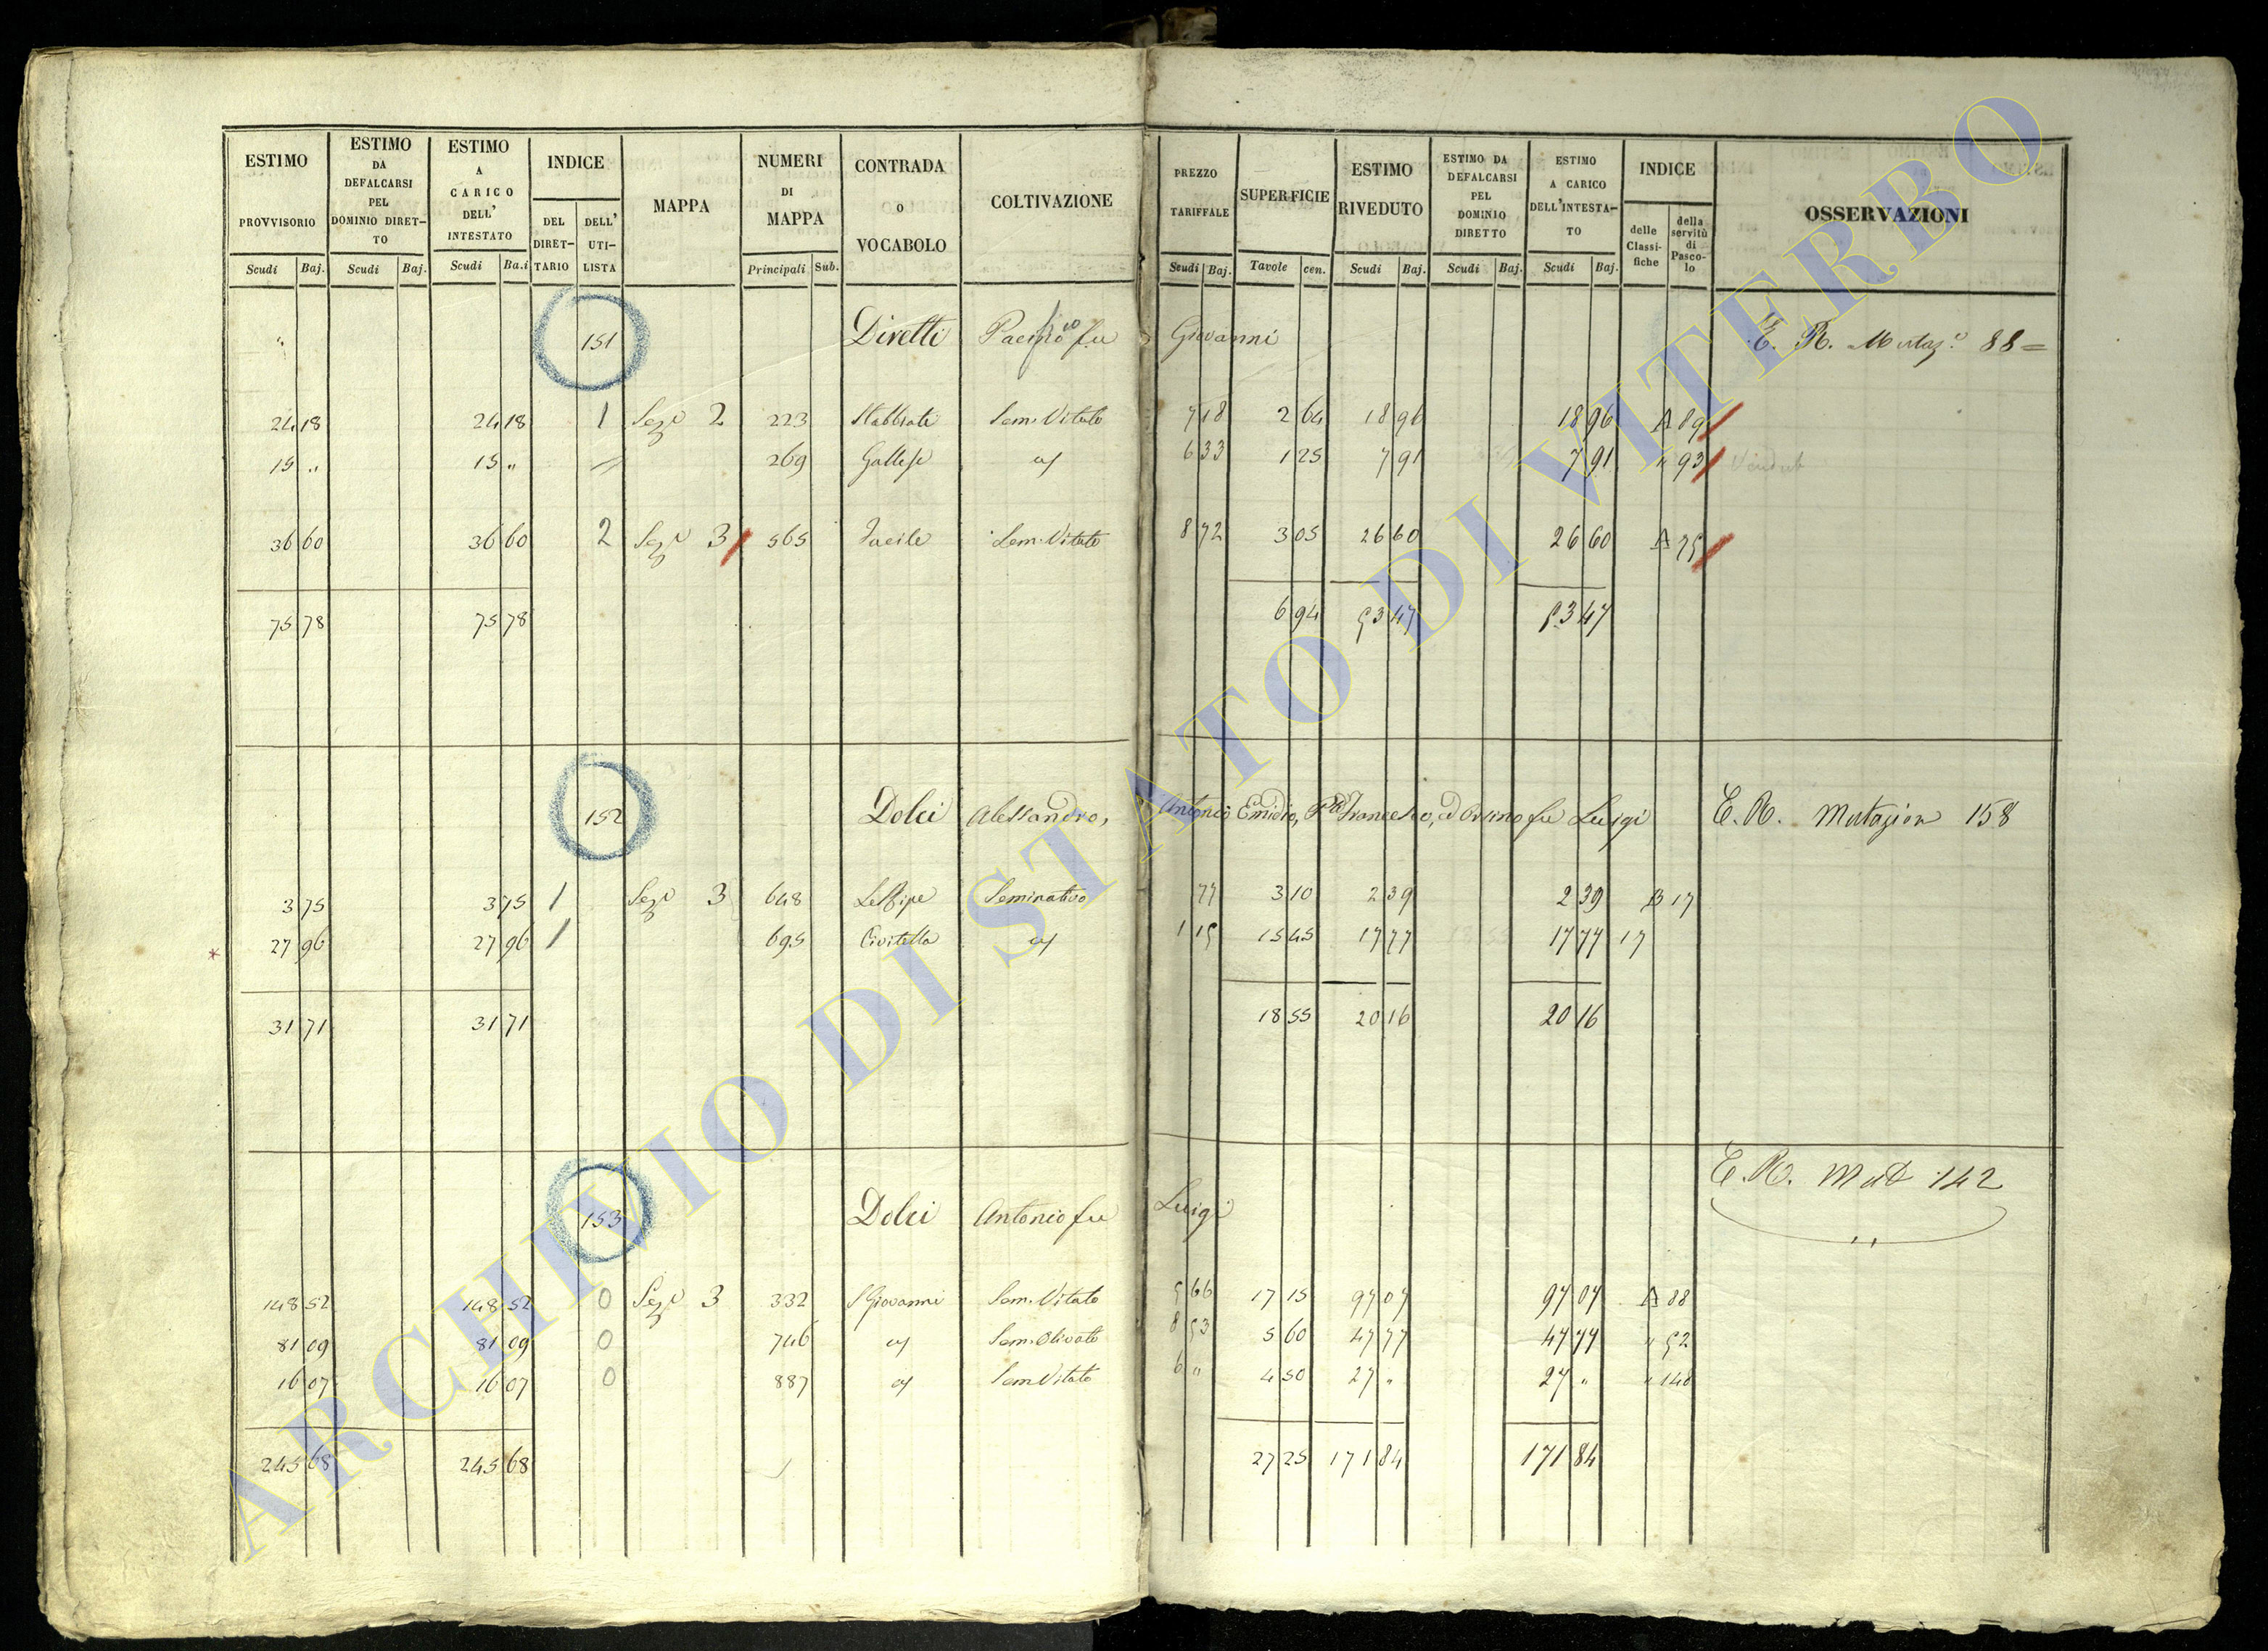 ESTIMO PROVVISORIO Scudi Baj. | ESTIMO DA DEFALCARSI PEL DOMINIO DIRETTO Scudi Baj. | ESTIMO A CARICO DELL' INTESTATO Scudi Ba.i | INDICE DEL DIRETTARIO DELL' UTILISTA | MAPPA | NUMERI DI MAPPA Principali Sub. | CONTRADA O VOCABOLO | COLTIVAZIONE | PREZZO TARIFFALE Scudi Baj. | SUPERFICIE Tavole cen. | ESTIMO RIVEDUTO Scudi Baj. | ESTIMO DA DEFALCARSI PEL DOMINIO DIRETTO Scudi Baj. | ESTIMO A CARICO DELL'INTESTATO Scudi Baj. | INDICE delle Classifiche della servitù di Pascolo | OSSERVAZIONI
" 151 Diretti Pacifico fu Giovanni E. R. Mutaz.e 88 =
24 18 24 18 1 Sez.e 2 223 Stabbiate Sem. Vitato 7 18 2 64 18 96 18 96 A 89
15 " 15 " " 269 Gallese " 6 33 1 25 7 91 7 91 " 93
36 60 36 60 2 Sez.e 3 565 Sem. Vitato 8 72 3 05 26 60 26 60 A 75
75 78 75 78 6 94 53 47 53 47
152 Dolci Alessandro, Antonio Emidio, Francesco, fu Luigi E. R. Mutazion 158
3 75 3 75 1 Sez.e 3 648 Le Ripe Seminativo 77 3 10 2 39 2 39 B 17
27 96 27 96 1 695 Civitella " 1 15 15 45 17 77 17 77 17
31 71 31 71 18 55 20 16 20 16
153 Dolci Antonio fu Luigi E. R. Mut 142
148 52 148 52 0 Sez.e 3 332 S Giovanni Sem. Vitato 5 66 17 15 97 07 97 07 A 88
81 09 81 09 0 746 " Sem. Olivato 8 53 5 60 47 77 47 77 " 52
16 07 16 07 0 887 " Sem Vitato 6 " 4 50 27 " 27 " " 140
245 68 245 68 27 25 171 84 171 84
ARCHIVIO DI STATO DI VITERBO